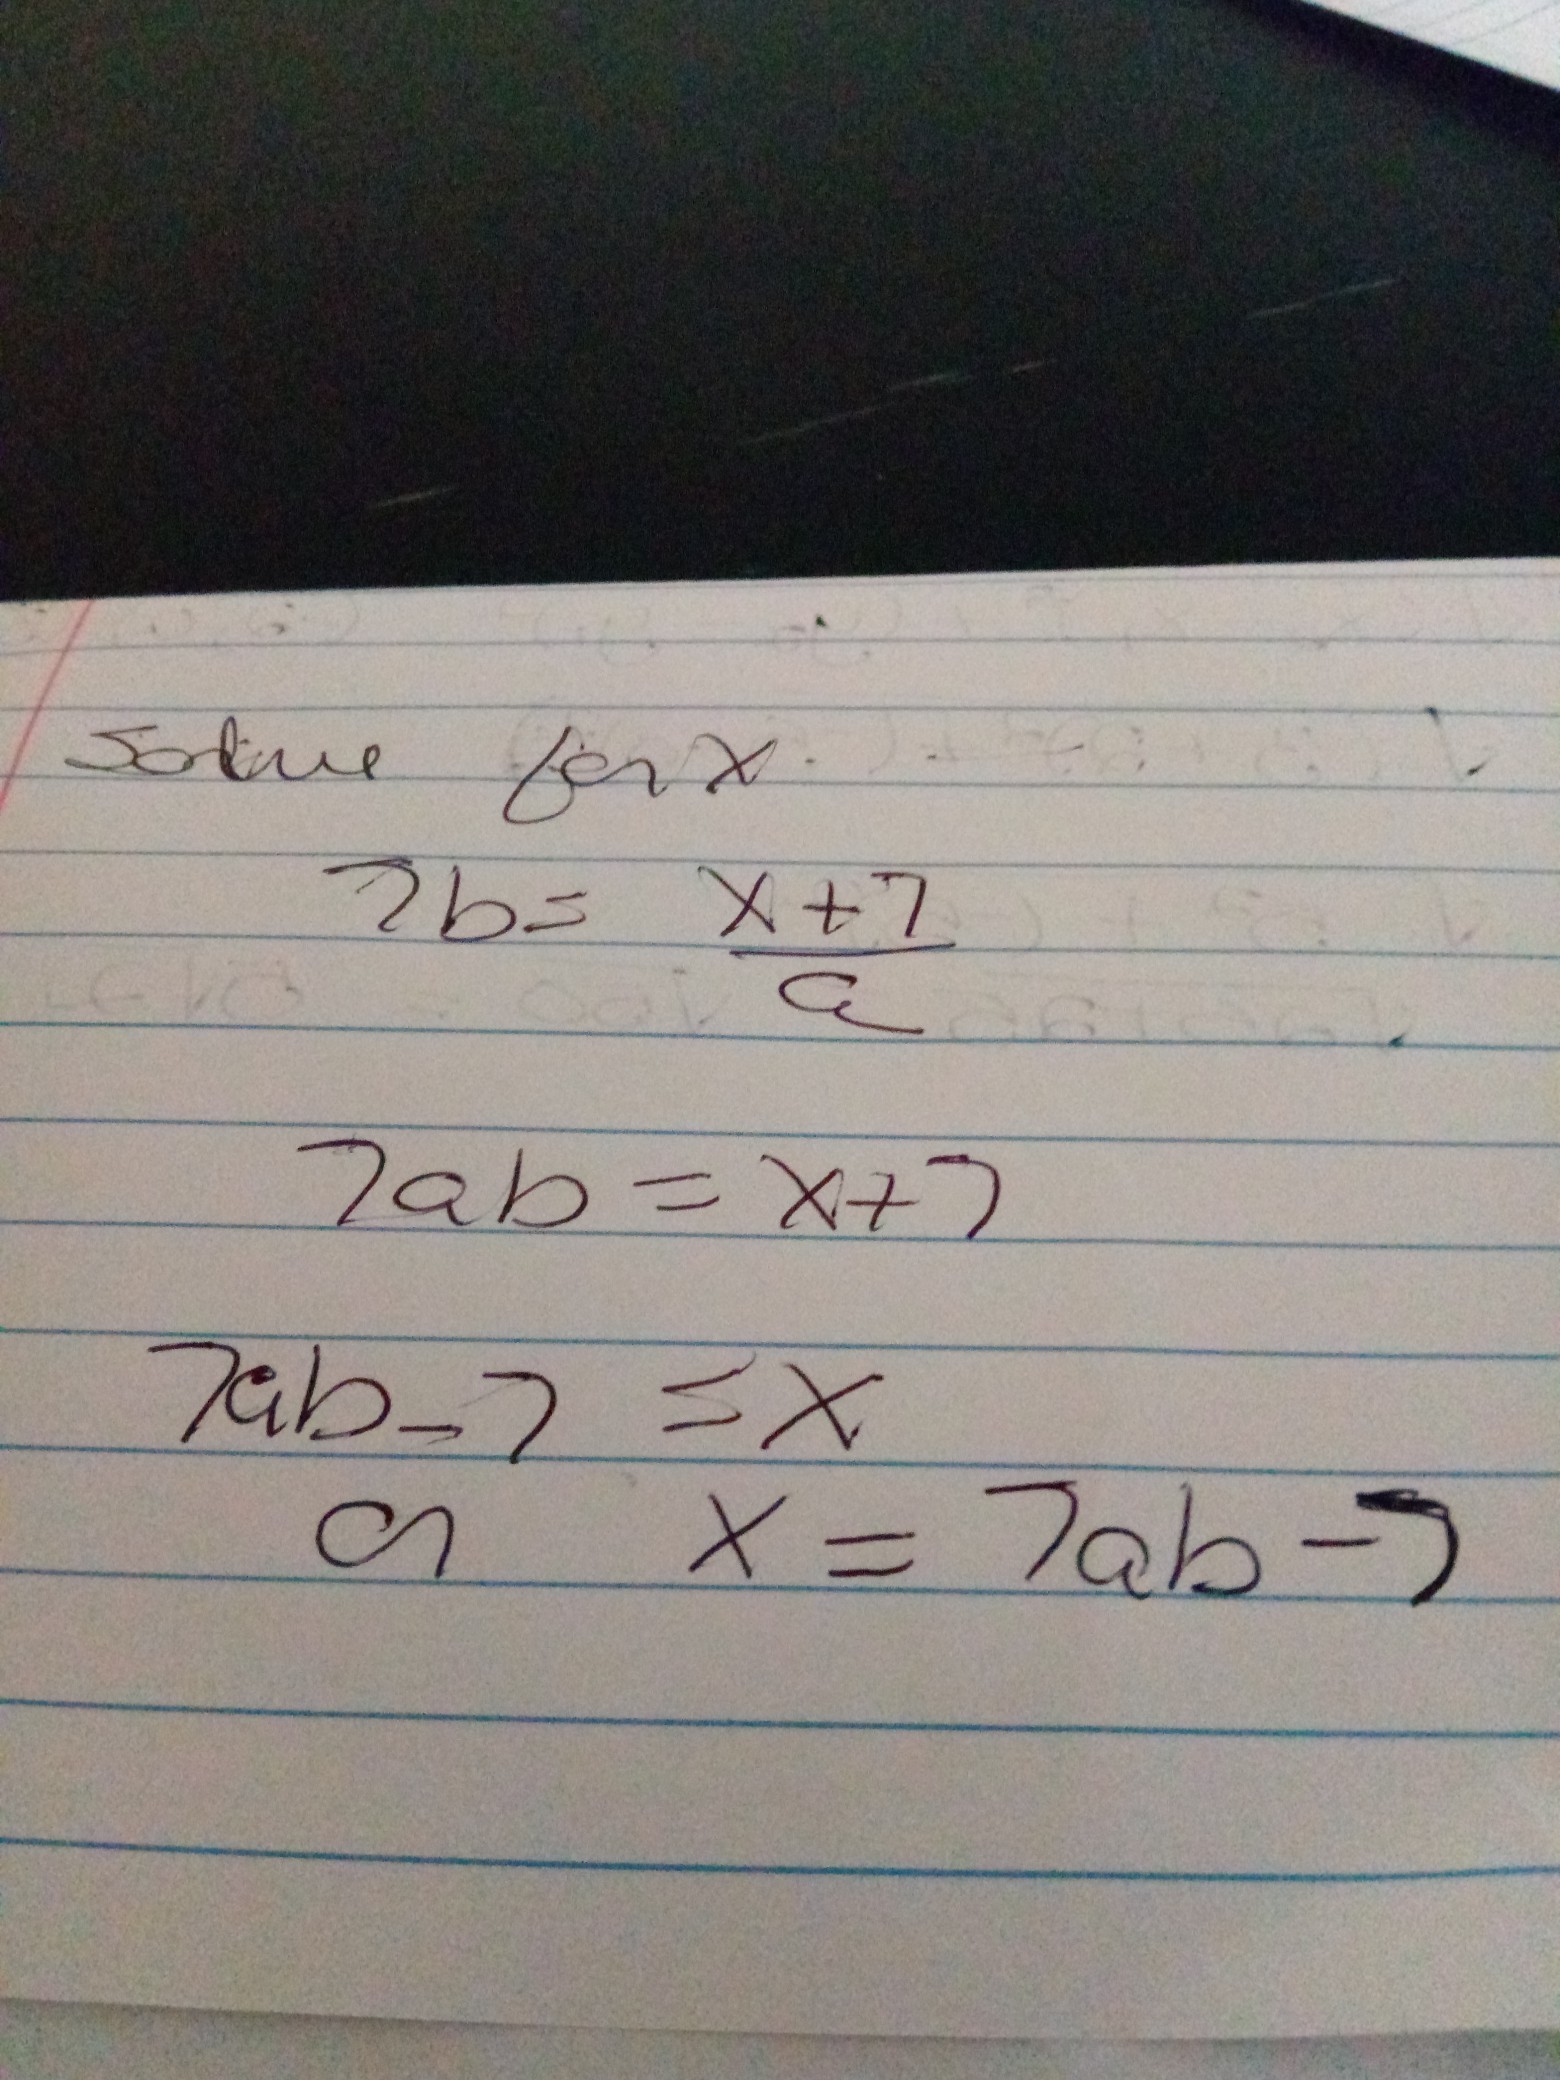 Solve for x
7b = x+7
a
7ab = x+7
7ab-7 = x
or x = 7ab-7